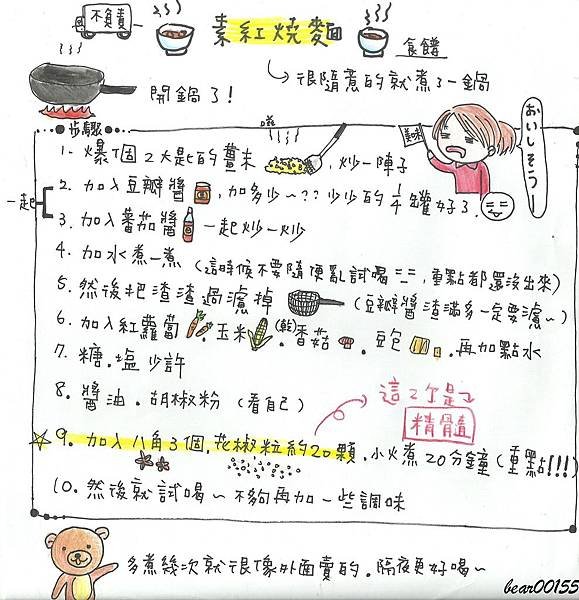 不負責
素紅燒麵
食譜
很隨意的就煮了一鍋
開鍋了!
步驟
美味
おいしそうー
1. 爆個2大匙的薑末,炒一陣子
2. 加入豆瓣醬,加多少~?? 少少的1/4罐好了.
一起
3. 加入蕃茄醬 一起炒一炒
4. 加水煮一煮 (這時候不要隨便亂試喝 ==, 重點都還沒出來)
5. 然後把渣渣過濾掉 (豆瓣醬渣滿多一定要濾~)
6. 加入紅蘿蔔.玉米.(乾)香菇.豆包.再加點水
7. 糖.塩少許
8. 醬油.胡椒粉 (看自己)
這2個是
精髓
9. 加入八角3個.花椒粒約20顆.小火煮20分鐘 (重點!!!)
10. 然後就試喝~不夠再加一些調味
多煮幾次就很像外面賣的.隔夜更好喝~
bear00155